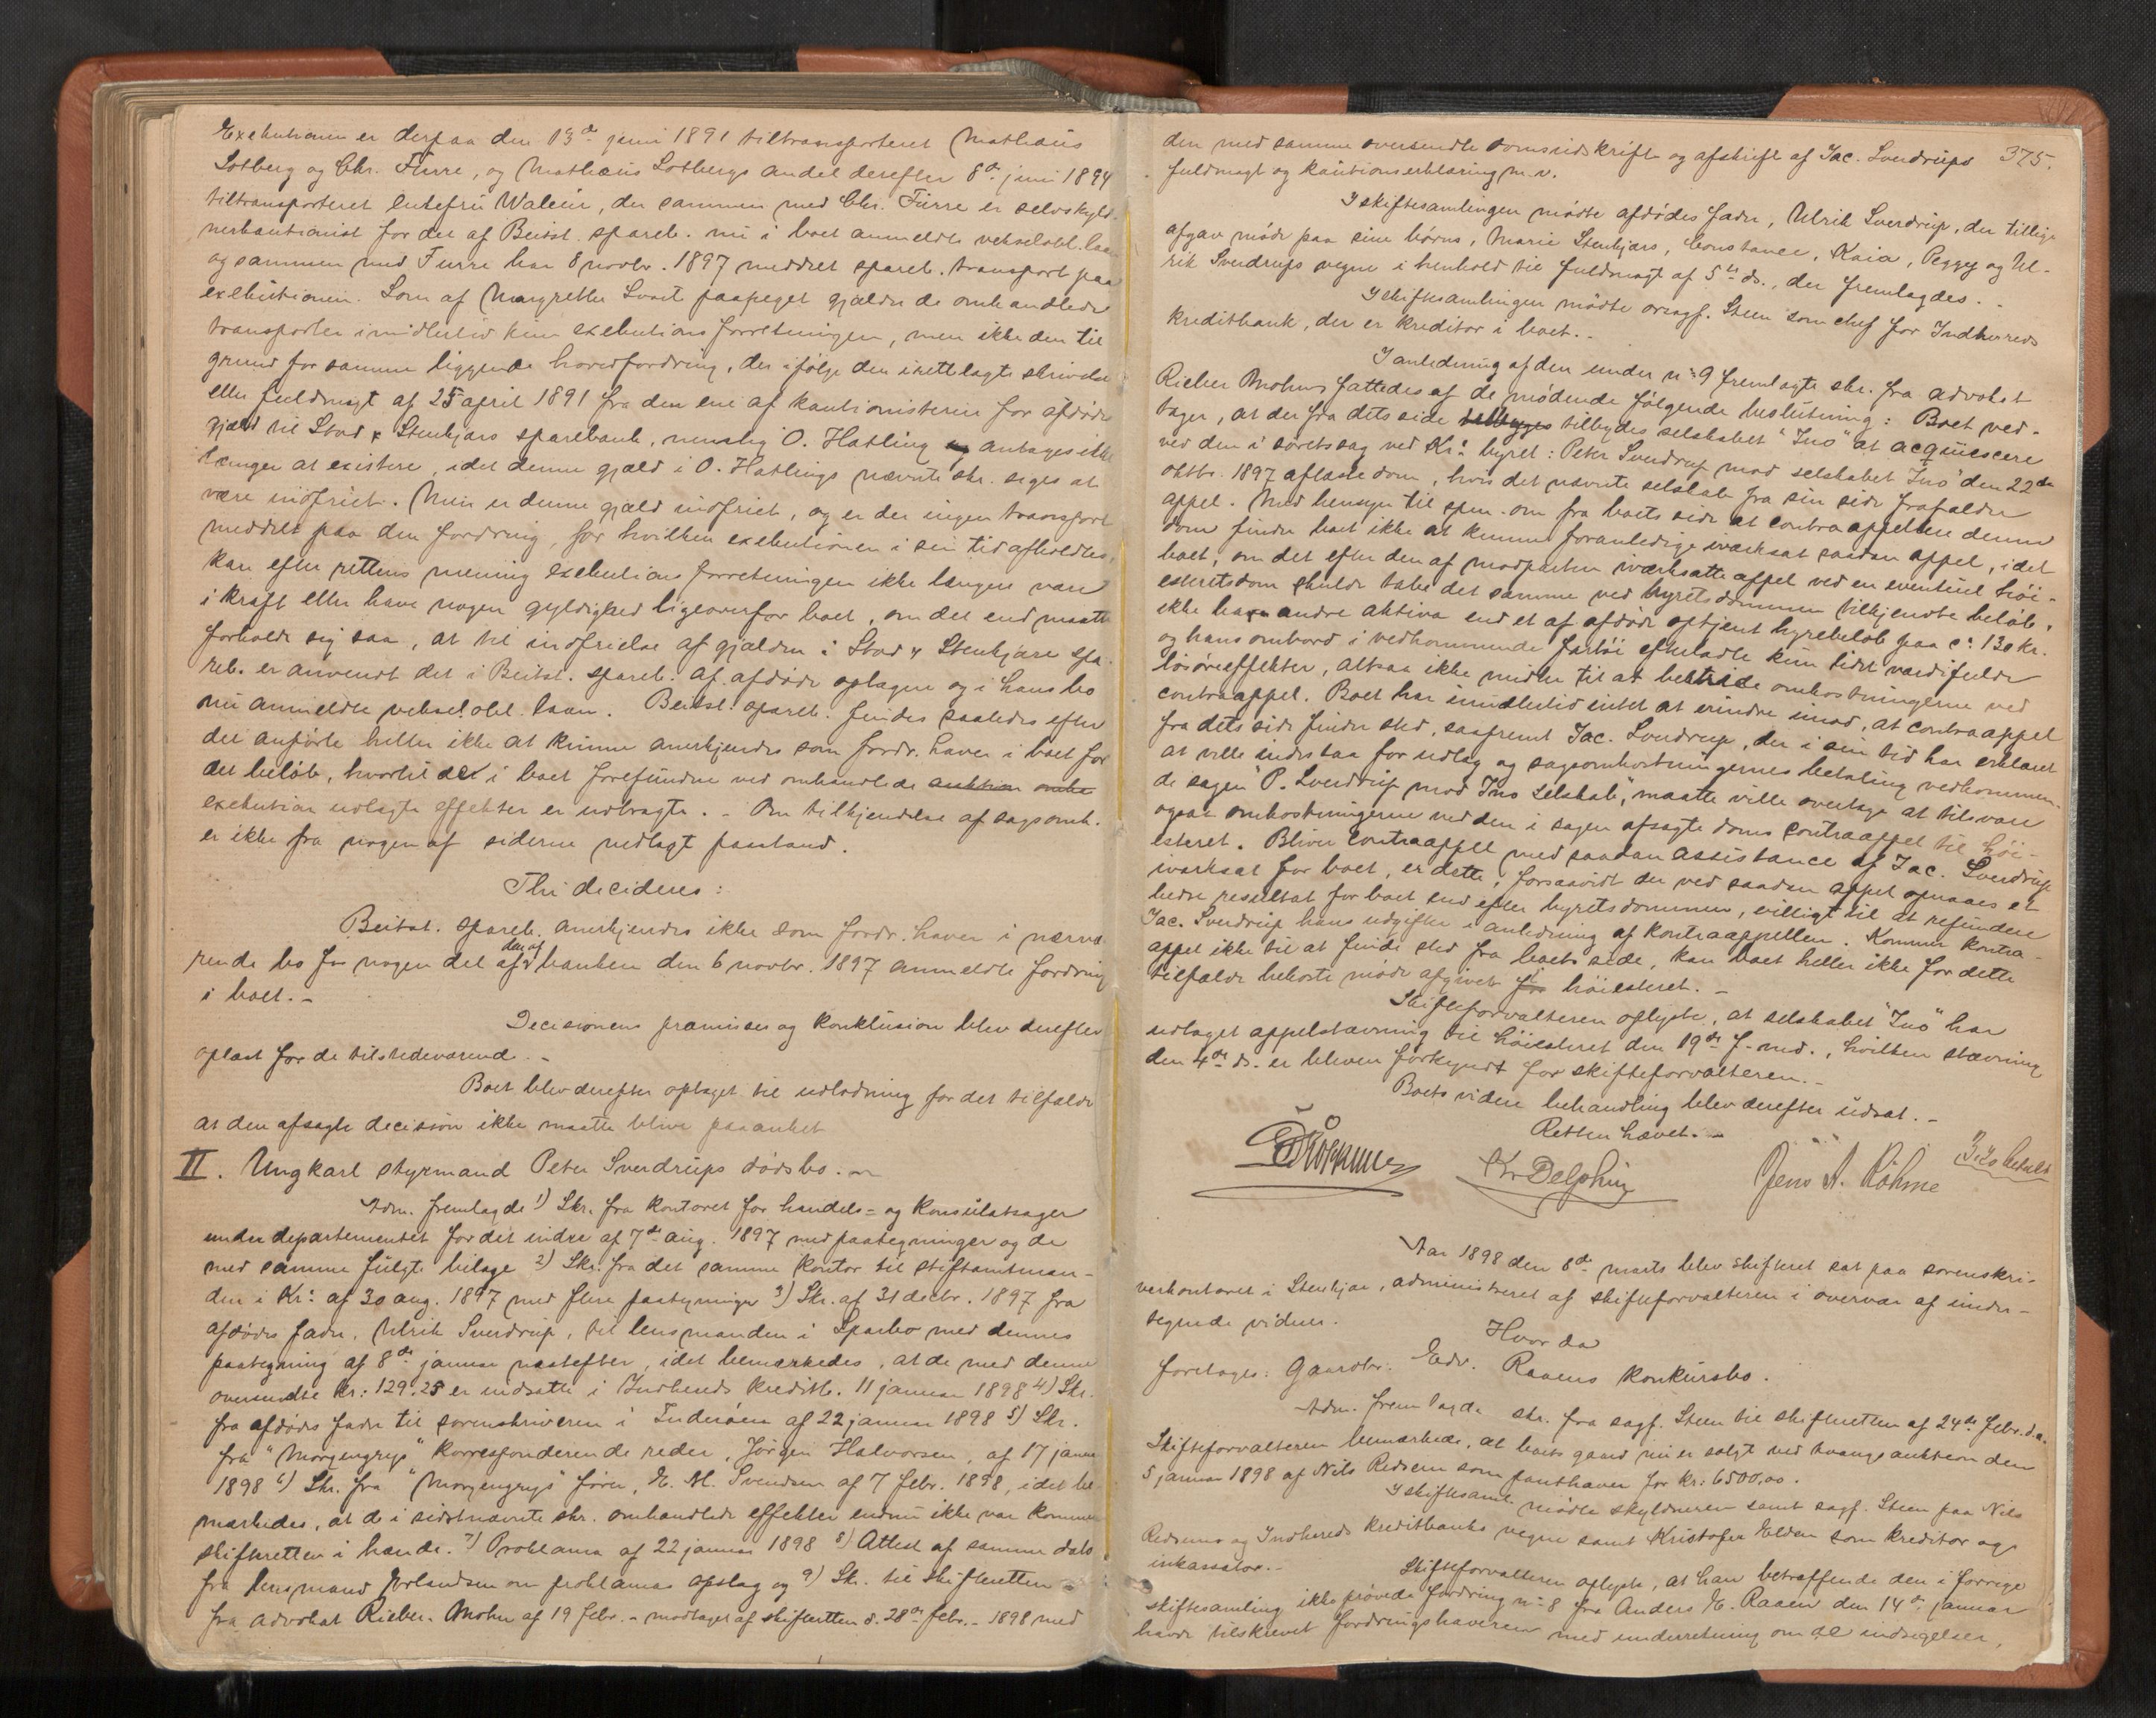 Exekutionen er derpaa den 13de juni 1891 tiltransporteret Mathæus
Solberg og Chr. Fürre, og Mathæus Solbergs andel derefter 8de juni 1894
tiltransporteret enkefru Waleur, der sammen med Chr. Fürre er selvskyld-
nerkautionist for det af Beitst. spareb. nu i boet anmeldte vekselobl. laan
og sammen med Furre har 8 novbr. 1897 meddelt spareb. transport paa
exekutionen. Som af Margrethe paapeget gjælder de omhandlede
transporter imidlertid kun exekutionsforretningen, men ikke den til
grund for samme liggende hovedfordring, der ifølge den irettelagte skrivelse
eller fuldmagt af 25 april 1891 fra den ene af kautionisterne for afdødes
gjæld til Stod & Stenkjærs sparebank, nemlig O. Hatling antages ikke
længer at existere, idet denne gjæld i O. Hatlings nævnte skr. siges at
være indfriet. Men er denne gjæld indfriet, og er der ingen transport
meddelt paa den fordring, for hvilken exekutionen i sin tid afholdtes,
kan efter rettens mening exekutionsforretningen ikke længere være
i kraft eller have nogen gyldighed ligeoverfor boet, om det end maatte
forholde sig saa, at til indfrielse af gjælden i Stod & Stenkjærs spa-
reb. er anvendt det i Beitst. spareb. af afdøde optagne og i hans bo
nu anmeldte vekselobl. laan. Beitst. spareb. findes saaledes efter
det anførte heller ikke at kunne anerkjendes som fordr. haver i boet for
det beløb, hvortil de i boet forefundne ved omhandlede auktion omha
exekution udlagte effekter er udbragte. – Om tilkjendelse af sagsomk.
er ikke fra nogen af siderne nedlagt paastand.
Thi decideres:
Beitst. spareb. anerkjendes ikke som fordr. haver i nærvæ-
rende bo for nogen del af den af banken den 6 novbr. 1897 anmeldte fordring
i boet. –
Decisionens præmisser og konklusion blev derefter
oplæst for de tilstedeværende. –
Boet blev derefter optaget til udlodning for det tilfælde
at den afsagte decision ikke maatte blive paaanket
II. Ungkarl styrmand Peter Sverdrups dødsbo. –
Adm. fremlagde 1) Skr. fra kontoret for handels- og konsulatsager
under departementet for det indre af 7de aug. 1897 med paategninger og de
med samme fulgte bilage 2) Skr. fra det samme kontor til stiftamtman-
den i Kr.a af 30 aug. 1897 med flere paategninger 3) Skr. af 31 decbr. 1897 fra
afdødes fader, Ulrik Sverdrup, til lensmanden i Sparbo med dennes
paategning af 8de januar næstefter, idet bemærkedes, at de med denne
oversendte kr: 129.25 er indsatte i Indherreds kreditb. 11 januar 1898 4) Skr.
fra afdødes fader til sorenskriveren i Inderøen af 22 januar 1898 5) Skr.
fra "Morgengrys" korresponderende reder, Jørgen Halvorsen, af 17 januar
1898 6) Skr. fra "Morgengrys" fører, E. M. Svendsen af 7 febr. 1898, idet be-
mærkedes, at de i sidstnævnte skr. omhandlede effekter endnu ikke var kommen
skifteretten i hænde. 7) Proklama af 22 januar 1898 8) Attest af samme dato
fra lensmand Erlandsen om proklamas opslag og 9) Skr. til skifteretten
fra advokat Rieber-Mohn af 19 febr. – modtaget af skifteretten d. 28de febr. – 1898 med
375.
den med samme oversendte domsudskrift og afskrift af Jac. Sverdrups
fuldmagt og kautionserklæring m.v.
I skiftesamlingen mødte afdødes fader, Ulrik Sverdrup, der tillige
afgav møde paa sine børns, Marie Stenkjærs, Constance, Kaia, Peggy og Ul-
rik Sverdrups vegne i henhold til fuldmagt af 5te ds., der fremlagdes. –
I skiftesamlingen mødte ovrsagf. Steen som chef for Indherreds
kreditbank, der er kreditor i boet. –
I anledning af den under no 9 fremlagte skr. fra advokat
Rieber Mohn fattedes af de mødende følgende beslutning: Boet ved-
tager, at der fra dets side tilbydes selskabet "Ino" at acquiescere
ved den i søretssag ved Kr.a byret: Peter Sverdrup mod selskabet "Ino" den 22de
oktbr. 1897 afsagte dom, hvis det nævnte selskab fra sin side frafalder
appel. Med hensyn til spm. om fra boets side at contraappellere denne
dom finder boet ikke at kunne foranledige iværksat saadan appel, idet
boet, om det efter den af modparten iværksatte appel ved en eventuel høi-
esteretsdom skulde tabe det samme ved byretsdommen tilkjendte beløb,
ikke have andre aktiva end et af afdøde optjent hyrebeløb paa c.a 130 kr.
og hans ombord i vedkommende fartøi efterladte kun lidet værdifulde
løsøreeffekter, altsaa ikke midler til at bestride omkostningerne ved
contraappel. Boet har imidlertid intet at erindre imod, at contraappel
fra dets side finder sted, saafremt Jac. Sverdrup, der i sin tid har erklæret
at ville indestaa for udlæg og sagsomkostningernes betaling vedkommen-
de sagen "P. Sverdrup mod Inos selskab", maatte ville overtage at tilsvare
ogsaa omkostningerne ved den i sagen afsagte doms contraappel til høi-
esteret. Bliver contraappel med saadan assistance af Jac. Sverdrup
iværksat for boet, er dette, forsaavidt der ved saadan appel opnaaes et
bedre resultat for boet end efter byretsdommen, villigt til at refundere
Jac. Sverdrup hans udgifter i anledning af kontraappellen. Kommer kontra-
appel ikke til at finde sted fra boets side, kan boet heller ikke for dette
tilfælde bekoste møde afgivet i høiesteret. –
Skifteforvalteren oplyste, at selskabet "Ino" har
udtaget appelstævning til høiesteret den 19de f. md., hvilken stævning
den 4de ds. er bleven forkyndt for skifteforvalteren. –
Boets videre behandling blev derefter udsat. –
Retten hævet. –
Kr Delphin
Jens A. Röhme
3.20 betalt
Aar 1898 den 8de marts blev skifteret sat paa sorenskri-
verkontoret i Stenkjær, administreret af skifteforvalteren i overvær af under-
tegnede vidner.
Hvor da
foretoges: Gaardbr. Edv. Raaens konkursbo.
Adm. fremlagde skr. fra sagf. Steen til skifteretten af 24de febr. d.a.
Skifteforvalteren bemærkede, at boets gaard nu er solgt ved tvangsauktion den
5 januar 1898 af Nils Redsem som panthaver for kr: 6500,00.
I skiftesaml. mødte skyldneren samt sagf. Steen paa Nils
Redsems og Indherreds kreditbanks vegne samt Kristofer Elden som kreditor og
inkassator. –
Skifteforvalteren oplyste, at han betræffende den i forrige
skiftesamling ikke prøvede fordring no 8 fra Anders E. Raaen den 14de januar
havde tilskrevet fordringshaveren med underretning om de indsigelser,